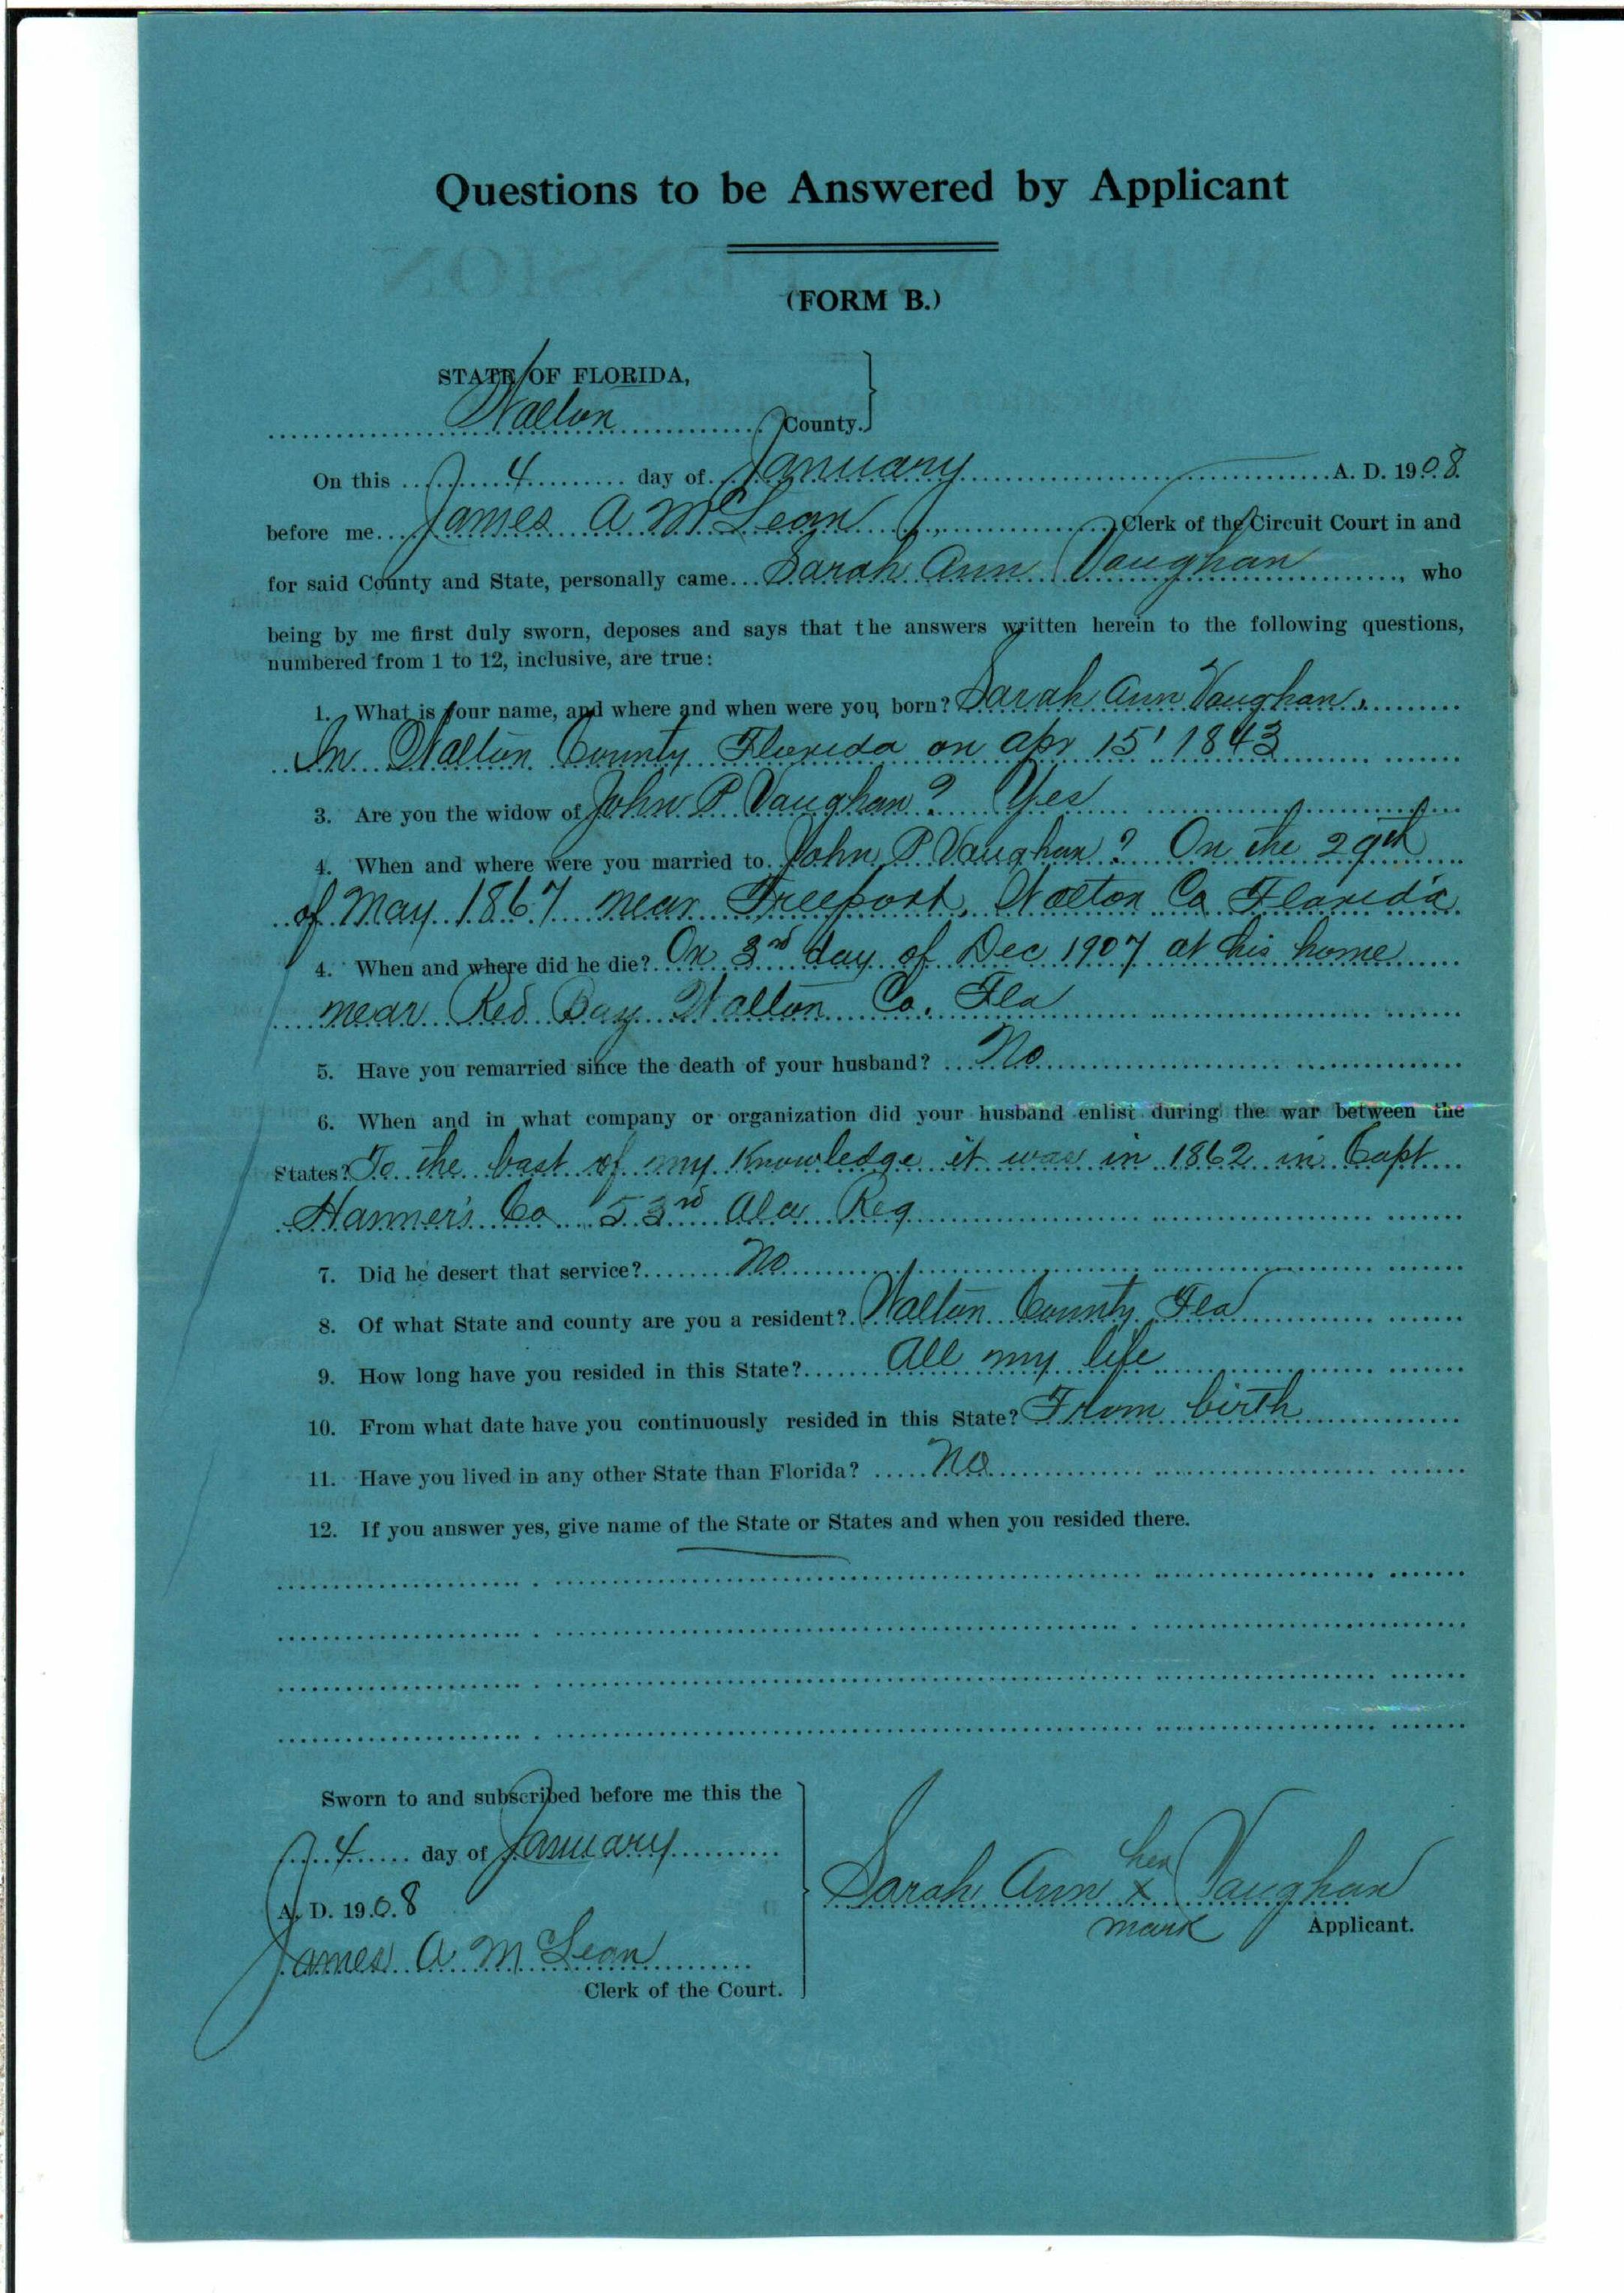 Questions to be Answered by Applicant
(FORM B.)
STATE OF FLORIDA,
Walton County.
On this 4 day of January A. D. 1908
before me James A McLean, Clerk of the Circuit Court in and
for said County and State, personally came Sarah Ann Vaughan, who
being by me first duly sworn, deposes and says that the answers written herein to the following questions,
numbered from 1 to 12, inclusive, are true:
1. What is your name, and where and when were you born? Sarah Ann Vaughan,
In Walton County Florida on Apr 15' 1843
3. Are you the widow of John P Vaughan? Yes
4. When and where were you married to John P Vaughan? On the 29th
of May 1867 near Freeport, Walton Co Florida
4. When and where did he die? On 3rd day of Dec 1907 at his home
near Red Bay Walton Co. Fla
5. Have you remarried since the death of your husband? No
6. When and in what company or organization did your husband enlist during the war between the
States? To the bast of my Knowledge it was in 1862 in Capt
Hanner's Co 53rd Ala Reg
7. Did he desert that service? No
8. Of what State and county are you a resident? Walton County Fla
9. How long have you resided in this State? All my life
10. From what date have you continuously resided in this State? From birth
11. Have you lived in any other State than Florida? No
12. If you answer yes, give name of the State or States and when you resided there.
Sworn to and subscribed before me this the
4 day of January
A. D. 1908
James A McLean
Clerk of the Court.
her
Sarah Ann x Vaughan
mark Applicant.